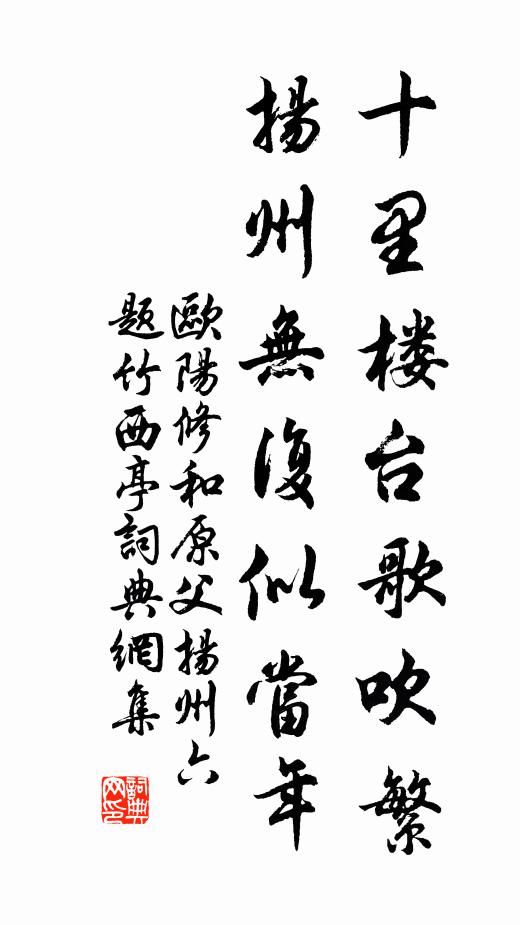 十里楼台歌吹繁
揚州無復似當年
歐陽修和原父揚州六
題竹西亭詞典網集
詞典
网印